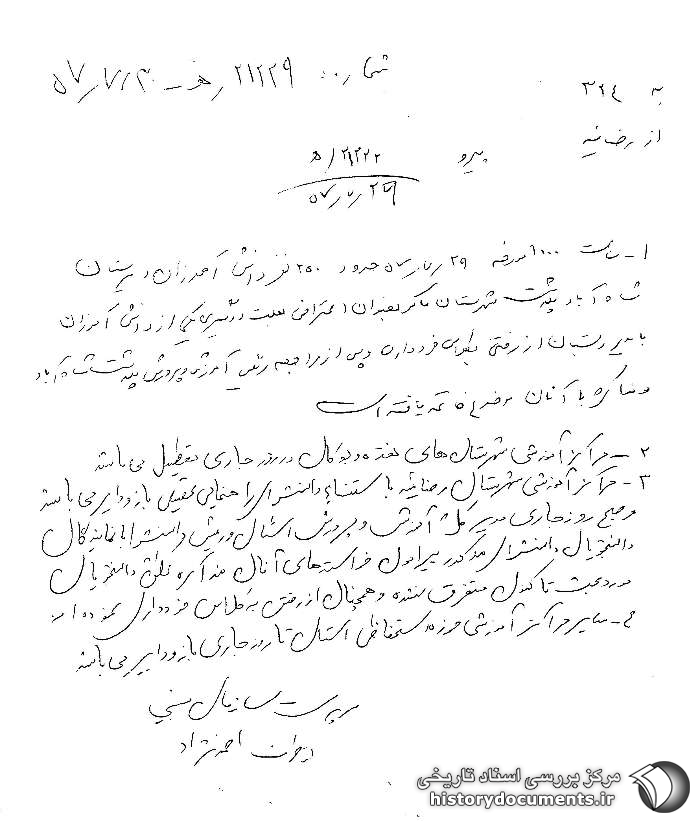 شماره: ۲۱۲۲۹/هـ - ۵۷/۷/۳۰
به ۳۲۴
از رضائیه
پیرو ۲۱۲۲۲/ه
۵۷/۷/۲۹
۱- ساعت ۱۰۰۰ مورخه ۲۹/۷/۵۷ حدود ۲۵۰ نفر دانش آموزان دبیرستان
شاه آباد پلدشت شهرستان ماکو بعنوان اعتراض بعلت دستگیری یکی از دانش آموزان
از رفتن بکلاس خودداری و پس از مراجعه رئیس آموزش و پرورش پلدشت شاه آباد
و مذاکره با آنان موضوع خاتمه یافته است
۲- مراکز آموزشی شهرستانهای نقده و بوکان در روز جاری تعطیل می باشد
۳- مراکز آموزشی شهرستان رضائیه با استثناء دانشسرای راهنمایی تحصیلی باز و دایر می باشد
و صبح روز جاری مدیر کل آموزش و پرورش استان و رئیس دانشسرا با نمایندگان
دانشجویان دانشسرای مذکور پیرامون خواسته های آنان مذاکره لکن دانشجویان
مورد بحث تاکنون متفرق نشده و همچنان از رفتن به کلاس خودداری نموده اند
۴- سایر مراکز آموزشی حوزه استحفاظی استان تا روز جاری باز و دایر می باشد
سرپست سازمان
احمدنژاد
مرکز بررسی اسناد تاریخی
historydocuments.ir